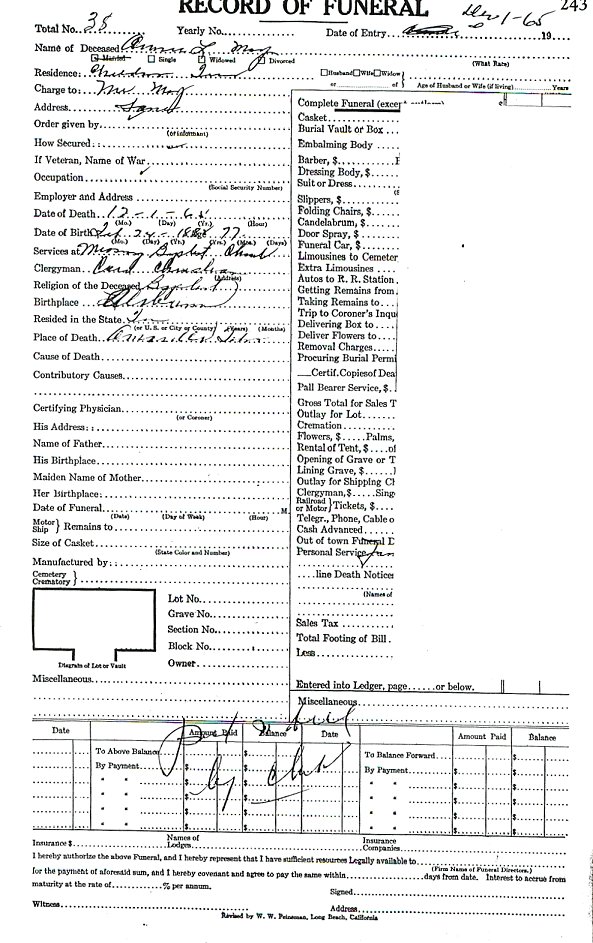 RECORD OF FUNERAL
243
Total No. 38 Yearly No. Date of Entry Dec 1-65 19
Name of Deceased L. May (What Rate)
Married Single Widowed Divorced
Residence: Husband Wife Widow
or of Age of Husband or Wife (if living) Years
Charge to: Mr. May
Address
Order given by
(or Informant)
How Secured:
If Veteran, Name of War
Occupation
(Social Security Number)
Employer and Address
Date of Death 12-1-65
(Mo.) (Day) (Yr.) (Hour)
Date of Birth 24 77
(Mo.) (Day) (Yrs.) (Mos.) (Days)
Services at Baptist Church
Clergyman
(Address)
Religion of the Deceased Baptist
Birthplace
Resided in the State
(or U. S. or City or County) (Years) (Months)
Place of Death Amarillo
Cause of Death
Contributory Causes
Certifying Physician
(or Coroner)
His Address: :
Name of Father
His Birthplace
Maiden Name of Mother
Her Birthplace:
Date of Funeral M.
(Date) (Day of Week) (Hour)
Motor Ship } Remains to
Size of Casket
(State Color and Number)
Manufactured by:
Cemetery Crematory }
Lot No.
Grave No.
Section No.
Block No.
Owner
Diagram of Lot or Vault
Miscellaneous
Complete Funeral (except
Casket
Burial Vault or Box
Embalming Body
Barber, $
Dressing Body, $
Suit or Dress
Slippers, $
Folding Chairs, $
Candelabrum, $
Door Spray, $
Funeral Car, $
Limousines to Cemeter
Extra Limousines
Autos to R. R. Station
Getting Remains from
Taking Remains to
Trip to Coroner's Inqu
Delivering Box to
Deliver Flowers to
Removal Charges
Procuring Burial Permi
Certif. Copies of Dea
Pall Bearer Service, $
Gross Total for Sales T
Outlay for Lot
Cremation
Flowers, $ Palms,
Rental of Tent, $ of
Opening of Grave or T
Lining Grave, $
Outlay for Shipping Ch
Clergyman, $ Sing
Railroad or Motor } Tickets, $
Telegr., Phone, Cable o
Cash Advanced
Out of town Funeral D
Personal Service
line Death Notice
(Names of
Sales Tax
Total Footing of Bill
Less
Entered into Ledger, page or below.
Miscellaneous
Date Amount Paid Balance Date Amount Paid Balance
To Above Balance $ $ To Balance Forward $
By Payment $ $ By Payment $ $
" " $ $ " " $ $
" " $ $ " " $ $
" " $ $ " " $ $
" " $ $ " " $ $
Pd by
Insurance $ Names of Lodges Insurance Companies
I hereby authorize the above Funeral, and I hereby represent that I have sufficient resources Legally available to
(Firm Name of Funeral Directors.)
for the payment of aforesaid sum, and I hereby covenant and agree to pay the same within days from date. Interest to accrue from
maturity at the rate of % per annum.
Signed
Witness Address
Revised by W. W. Feineman, Long Beach, California